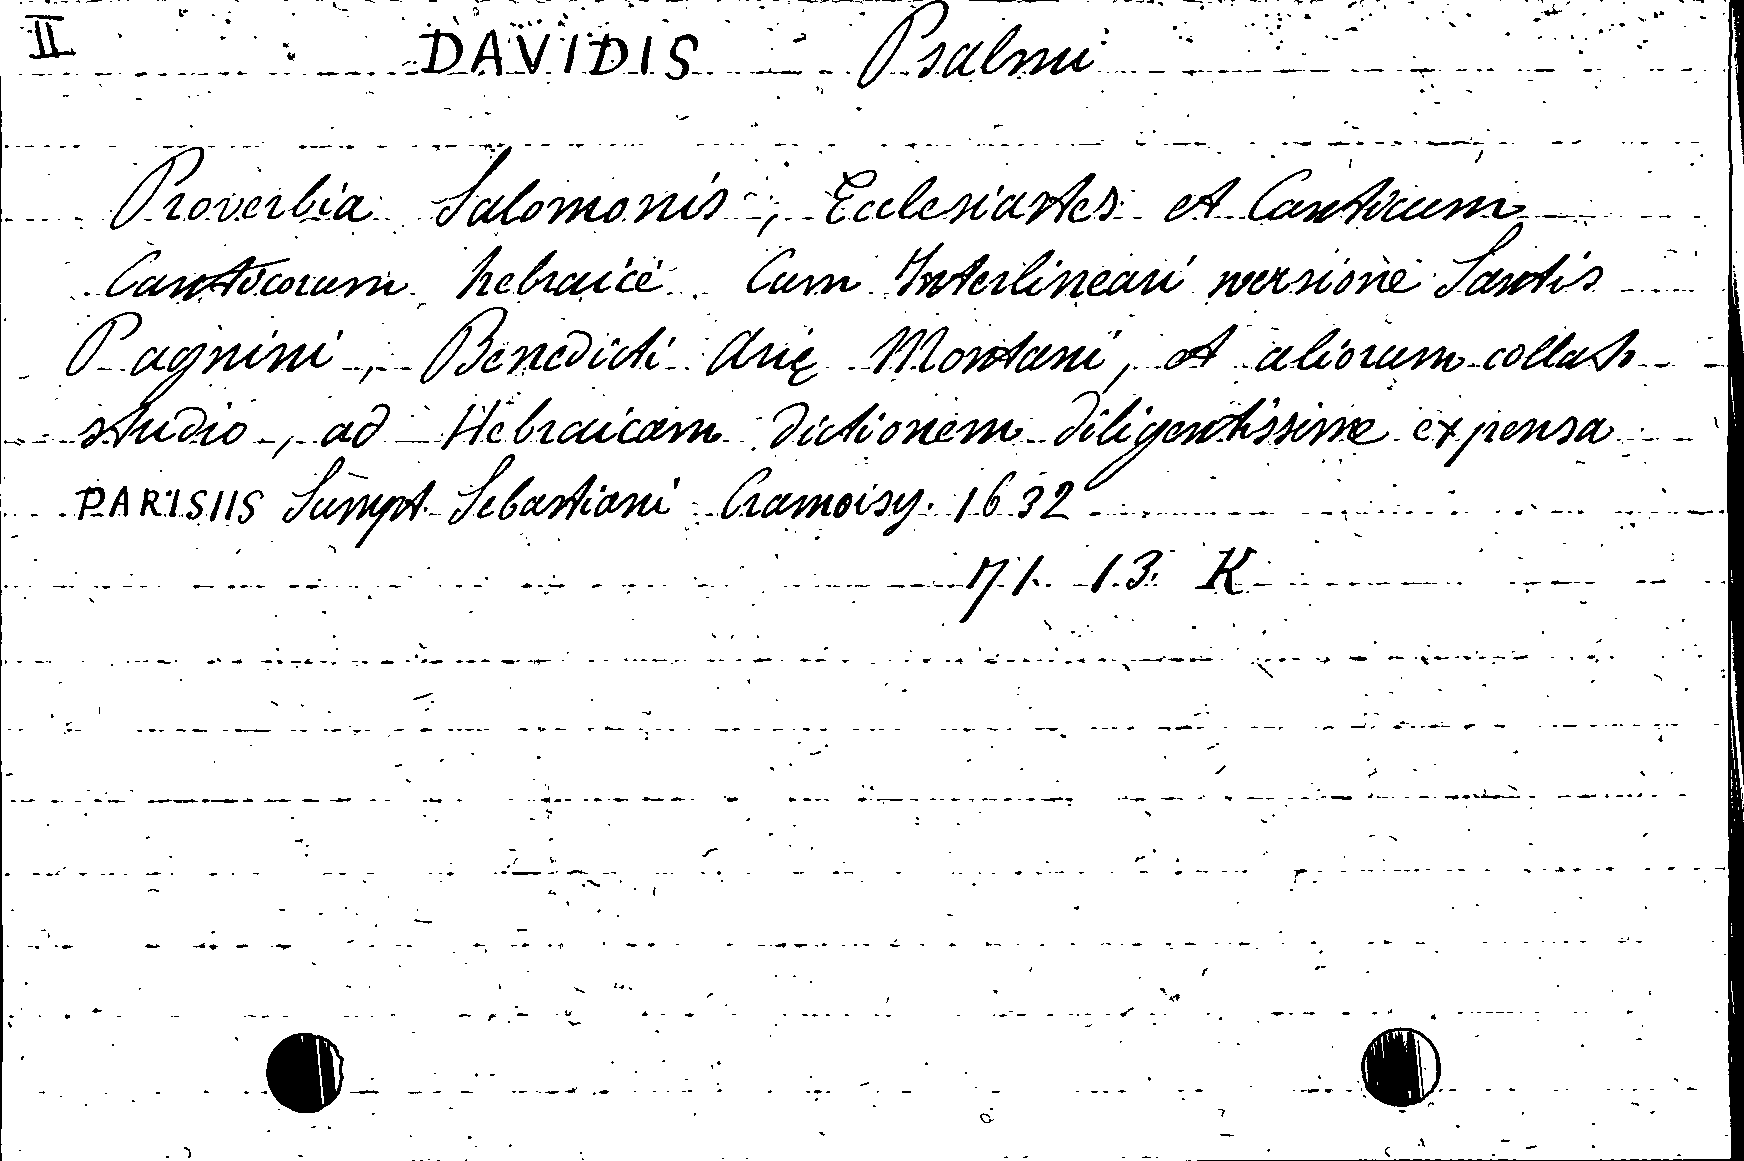 II DAVIDIS Psalmi
Proverbia Salomonis, Ecclesiastes et Canticum
Canticorum hebraicè. Cum Interlineari versione Santis
Pagnini, Benedicti Arię Montani, et aliorum collato
studio, ad Hebraicam dictionem diligentissime expensa
PARISIIS Sumpt. Sebastiani Cramoisy. 1632
71. 13. K